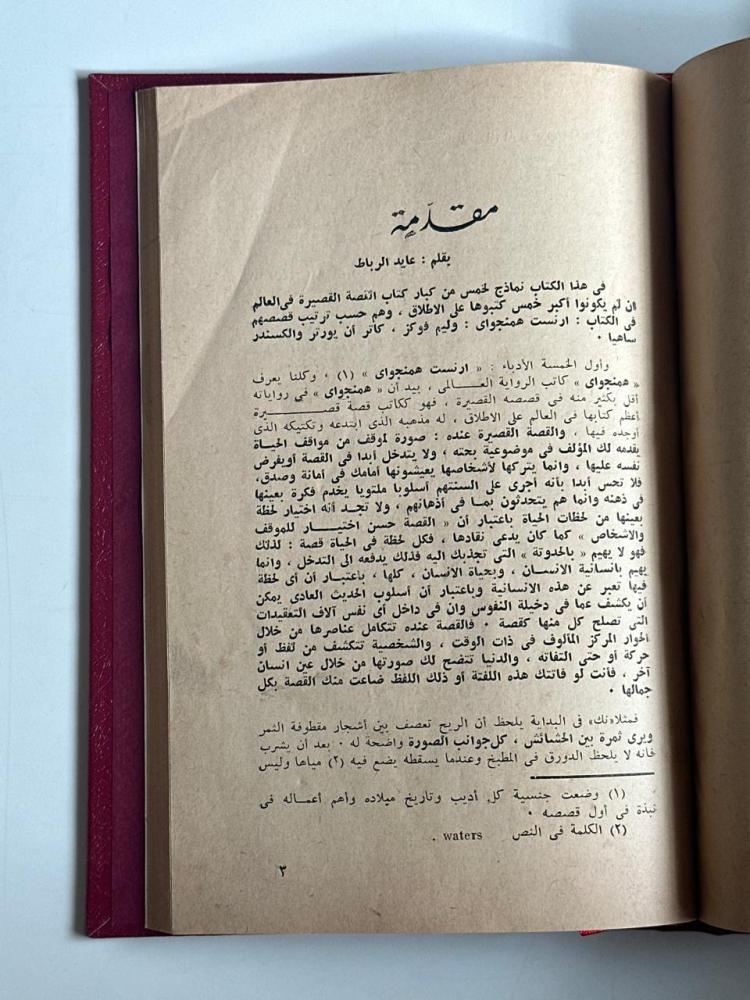 مقدّمة
بقلم : عايد الرباط
فى هذا الكتاب نماذج لخمس من كبار كتاب القصة القصيرة فى العالم
ان لم يكونوا أكبر خمس كتبوها على الاطلاق ، وهم حسب ترتيب قصصهم
فى الكتاب : ارنست همنجواى : وليم فوكز ، كاتر آن بورتر والكسندر
ساهيا .
وأول الخمسة الأدباء : « ارنست همنجواى » (١) ، وكلنا يعرف
« همنجواى » كاتب الرواية العـالمى ، بيد أن « همنجواى » فى رواياته
أقل بكثير منه فى قصصه القصيرة ، فهو ككاتب قصة قصـــــيرة
أعظم كتابها فى العالم على الاطلاق ، له مذهبه الذى ابتدعه وتكنيكه الذى
أوجده فيها ، والقصة القصيرة عنده : صورة لموقف من مواقف الحياة
يقدمه لك المؤلف فى موضوعية بحته ؛ ولا يتدخل أبدا فى القصة أويفرض
نفسه عليها ، وانما يتركها لأشخاصها يعيشونها أمامك فى أمانة وصدق،
فلا تحس أبدا بأنه أجرى على السنتهم أسلوبا ملتويا يخدم فكرة بعينها
فى ذهنه وانما هم يتحدثون بمـا فى أذهانهم ، ولا تجـد أنه اختيار لحظة
بعينها من لحظات الحياة باعتبار أن « القصة حسن اختيـــار للموقف
والاشخاص » كما كان يدعى نقادها ، فكل لحظة فى الحياة قصة : لذلك
فهو لا يهيم « بالحدوتة » التى تجذبك اليه فذلك يدفعه الى التدخل ، وانما
يهيم بانسانية الانسـان ، وبحياة الانسان ، كلها ، باعتبـار أن أى لحظة
فيها تعبر عن هذه الانسانية وباعتبار أن أسلوب الحديث العادى يمكن
أن يكشف عما فى دخيلة النفوس وان فى داخل أى نفس آلاف التعقيدات
التى تصلح كل منها كقصة . فالقصة عنده تتكامل عناصرها من خلال
الحوار المركز المألوف فى ذات الوقت ، والشخصية تتكشف من لفظ أو
حركة أو حتى التفاته ، والدنيا تتضح لك صورتها من خلال عين انسان
آخر ، فأنت لو فاتتك هذه اللفتة أو ذلك اللفظ ضاعت منك القصة بكل
جمالها .
فمثلا«نك» فى البداية يلحظ أن الريح تعصف بين أشجار مقطوفة الثمر
ويرى ثمرة بين الحشائش ، كل جوانب الصورة واضحة له . بعد أن يشرب
فانه لا يلحظ الدورق فى المطبخ وعندما يسقطه يضع فيه (٢) مياها وليس
(١) وضعت جنسية كل أديب وتاريخ ميلاده وأهم أعمـاله فى
نبذة فى أول قصصه .
(٢) الكلمة فى النص waters .
٣